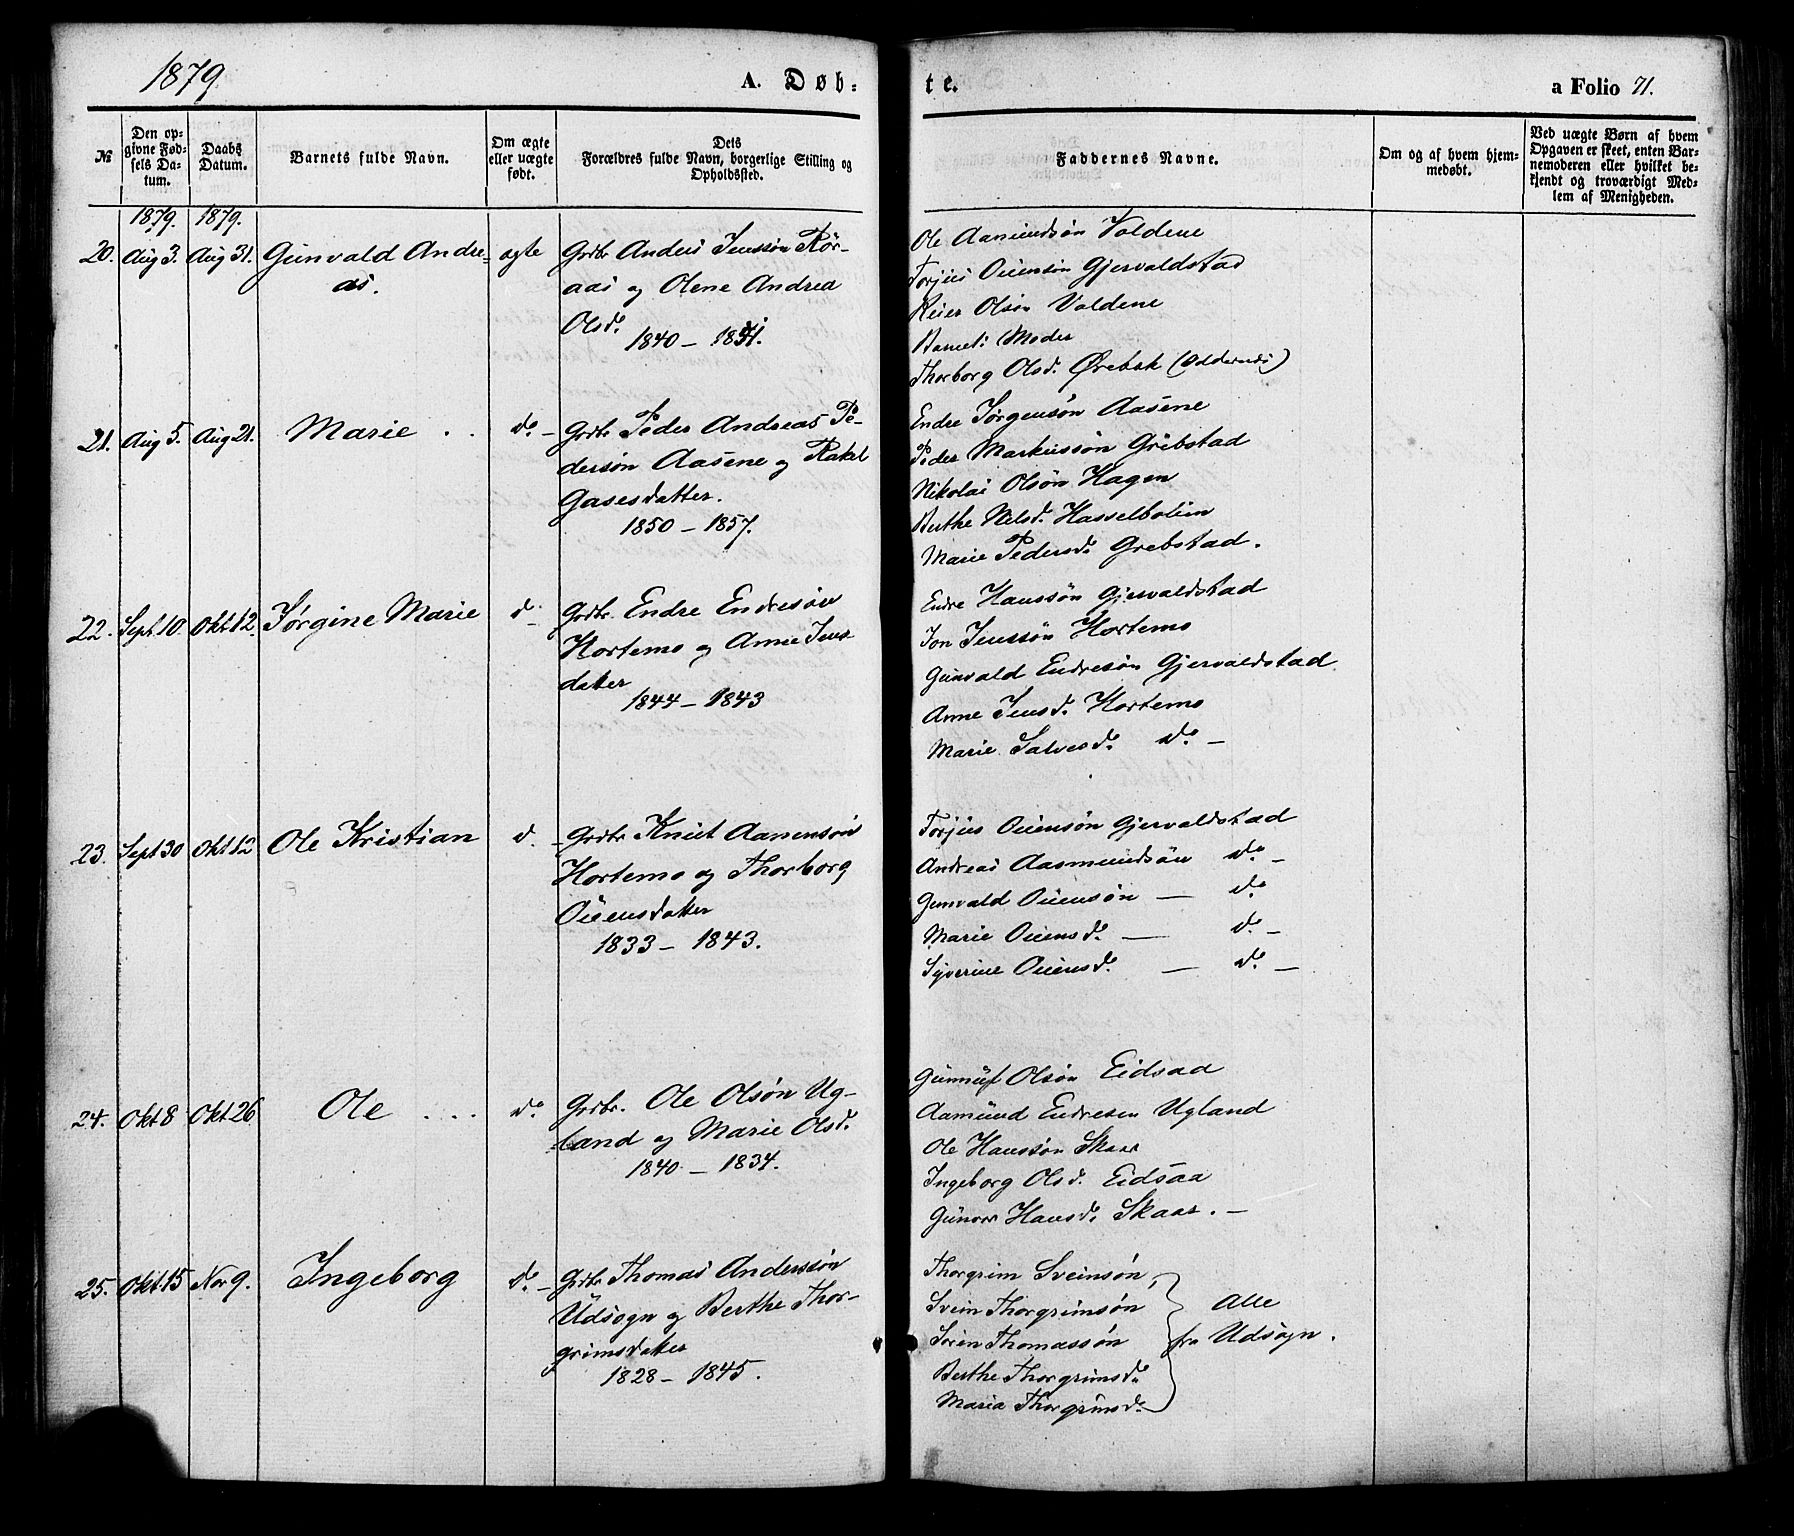 1879.
A. Døb-
te.
a Folio 71.
№
Den op-
givne Fød-
sels Da-
tum.
Daabs
Datum.
Barnets fulde Navn.
Om ægte
eller uægte
født.
Dets
Forældres fulde Navn, borgerlige Stilling og
Opholdssted.
Faddernes Navne.
Om og af hvem hjem-
medøbt.
Ved uægte Børn af hvem
Opgaven er skeet, enten Bar-
nemoderen eller hvilket be-
kjendt og troværdigt Med-
lem af Menigheden.
1879. 1879.
20. Aug 3. Aug 31. Gunvald Andre-
as.
ægte
Grdbr Anders Jenssøn Rör-
aas og Olene Andrea
Olsd.
1840 - 1851.
Ole Aamundsøn Voldene
Torjus Ouensøn Gjervaldstad
Reier Olsøn Voldene
Barnets Moder
Thorborg Olsd. Ørebek
21. Aug 5. Aug 21. Marie . .
do -
Grdbr Peder Andreas Pe-
dersøn Aasene og Rakel
Gasesdatter.
1850 - 1857.
Endre Jørgensøn Aasene
Peder Markussøn Gribstad
Nikolai Olsøn Hagen
Berthe Nilsd. Hasselbolein
Marie Pedersd. Grebstad.
22. Sept. 10. Okt 12. Jørgine Marie
d. -
Grdbr. Endre Endresøn
Hortemo og Anne Jens
datter
1844 - 1843
Endre Hanssøn Gjervaldstad
Jon Jenssøn Hortemo
Gunvald Endresøn Gjervaldstad.
Anne Jensd. Hortemo
Marie Salvesd. do -
23. Sept 30 Okt 12 Ole Kristian
d. -
Grdbr Knut Aanensøn
Hortemo og Thorborg
Ouensdatter
1833 - 1843.
Torjus Ouensøn Gjervaldstad
Andreas Aasmundsøn do -
Gunvald Ouensøn — do
Marie Ouensd. — do -
Syverine Ouensd. — do -
24. Okt 8 Okt 26 Ole . . .
do
Grdbr. Ole Olsøn Ug-
land og Marie Olsd.
1840 - 1834.
Gunnuf Olsøn Eidsaa
Aamund Endresen Ugland
Ole Hanssøn Skaar
Ingeborg Olsd. Eidsaa
Gunvor Hansd. Skaar. -
25. Okt. 15 Nov 9. Ingeborg
do -
Grdbr Thomas Anderssøn
Udsogn og Berthe Thor-
grimsdatter
1828 - 1845.
Thorgrim Sveinsøn,
Svein Thorgrimsøn
Søren Thomassøn
Berthe Thorgrimsd.
Maria Thorgrimsd.
Alle
fra Udsogn.